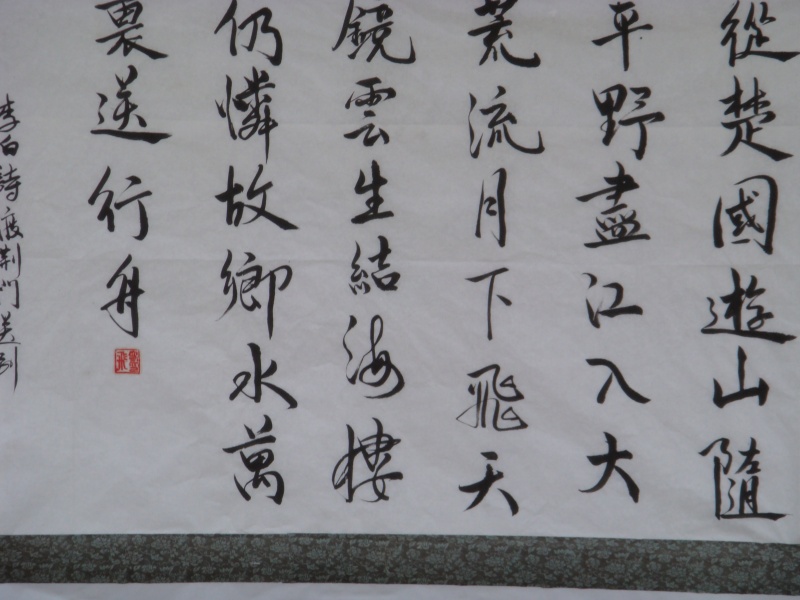 從楚國遊山隨
平野盡江入大
荒流月下飛天
鏡雲生結海樓
仍憐故鄉水萬
裏送行舟
李白詩渡荊門送別